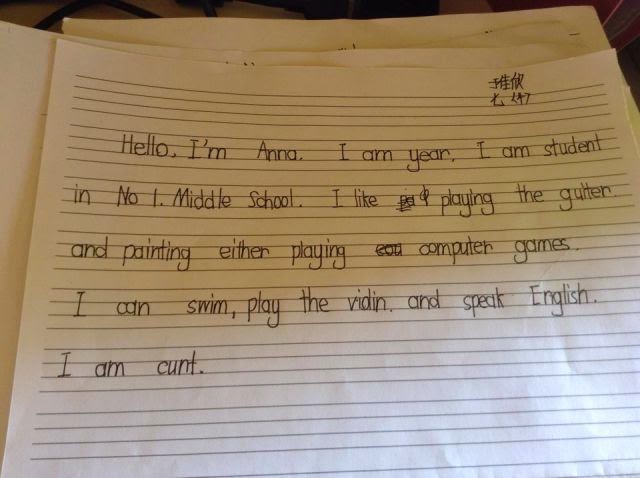 七(4)
Hello, I'm Anna. I am year. I am student
in No 1. Middle School. I like playing the guiter.
and painting either playing computer games.
I can swim, play the vidin. and speak English.
I am cunt.